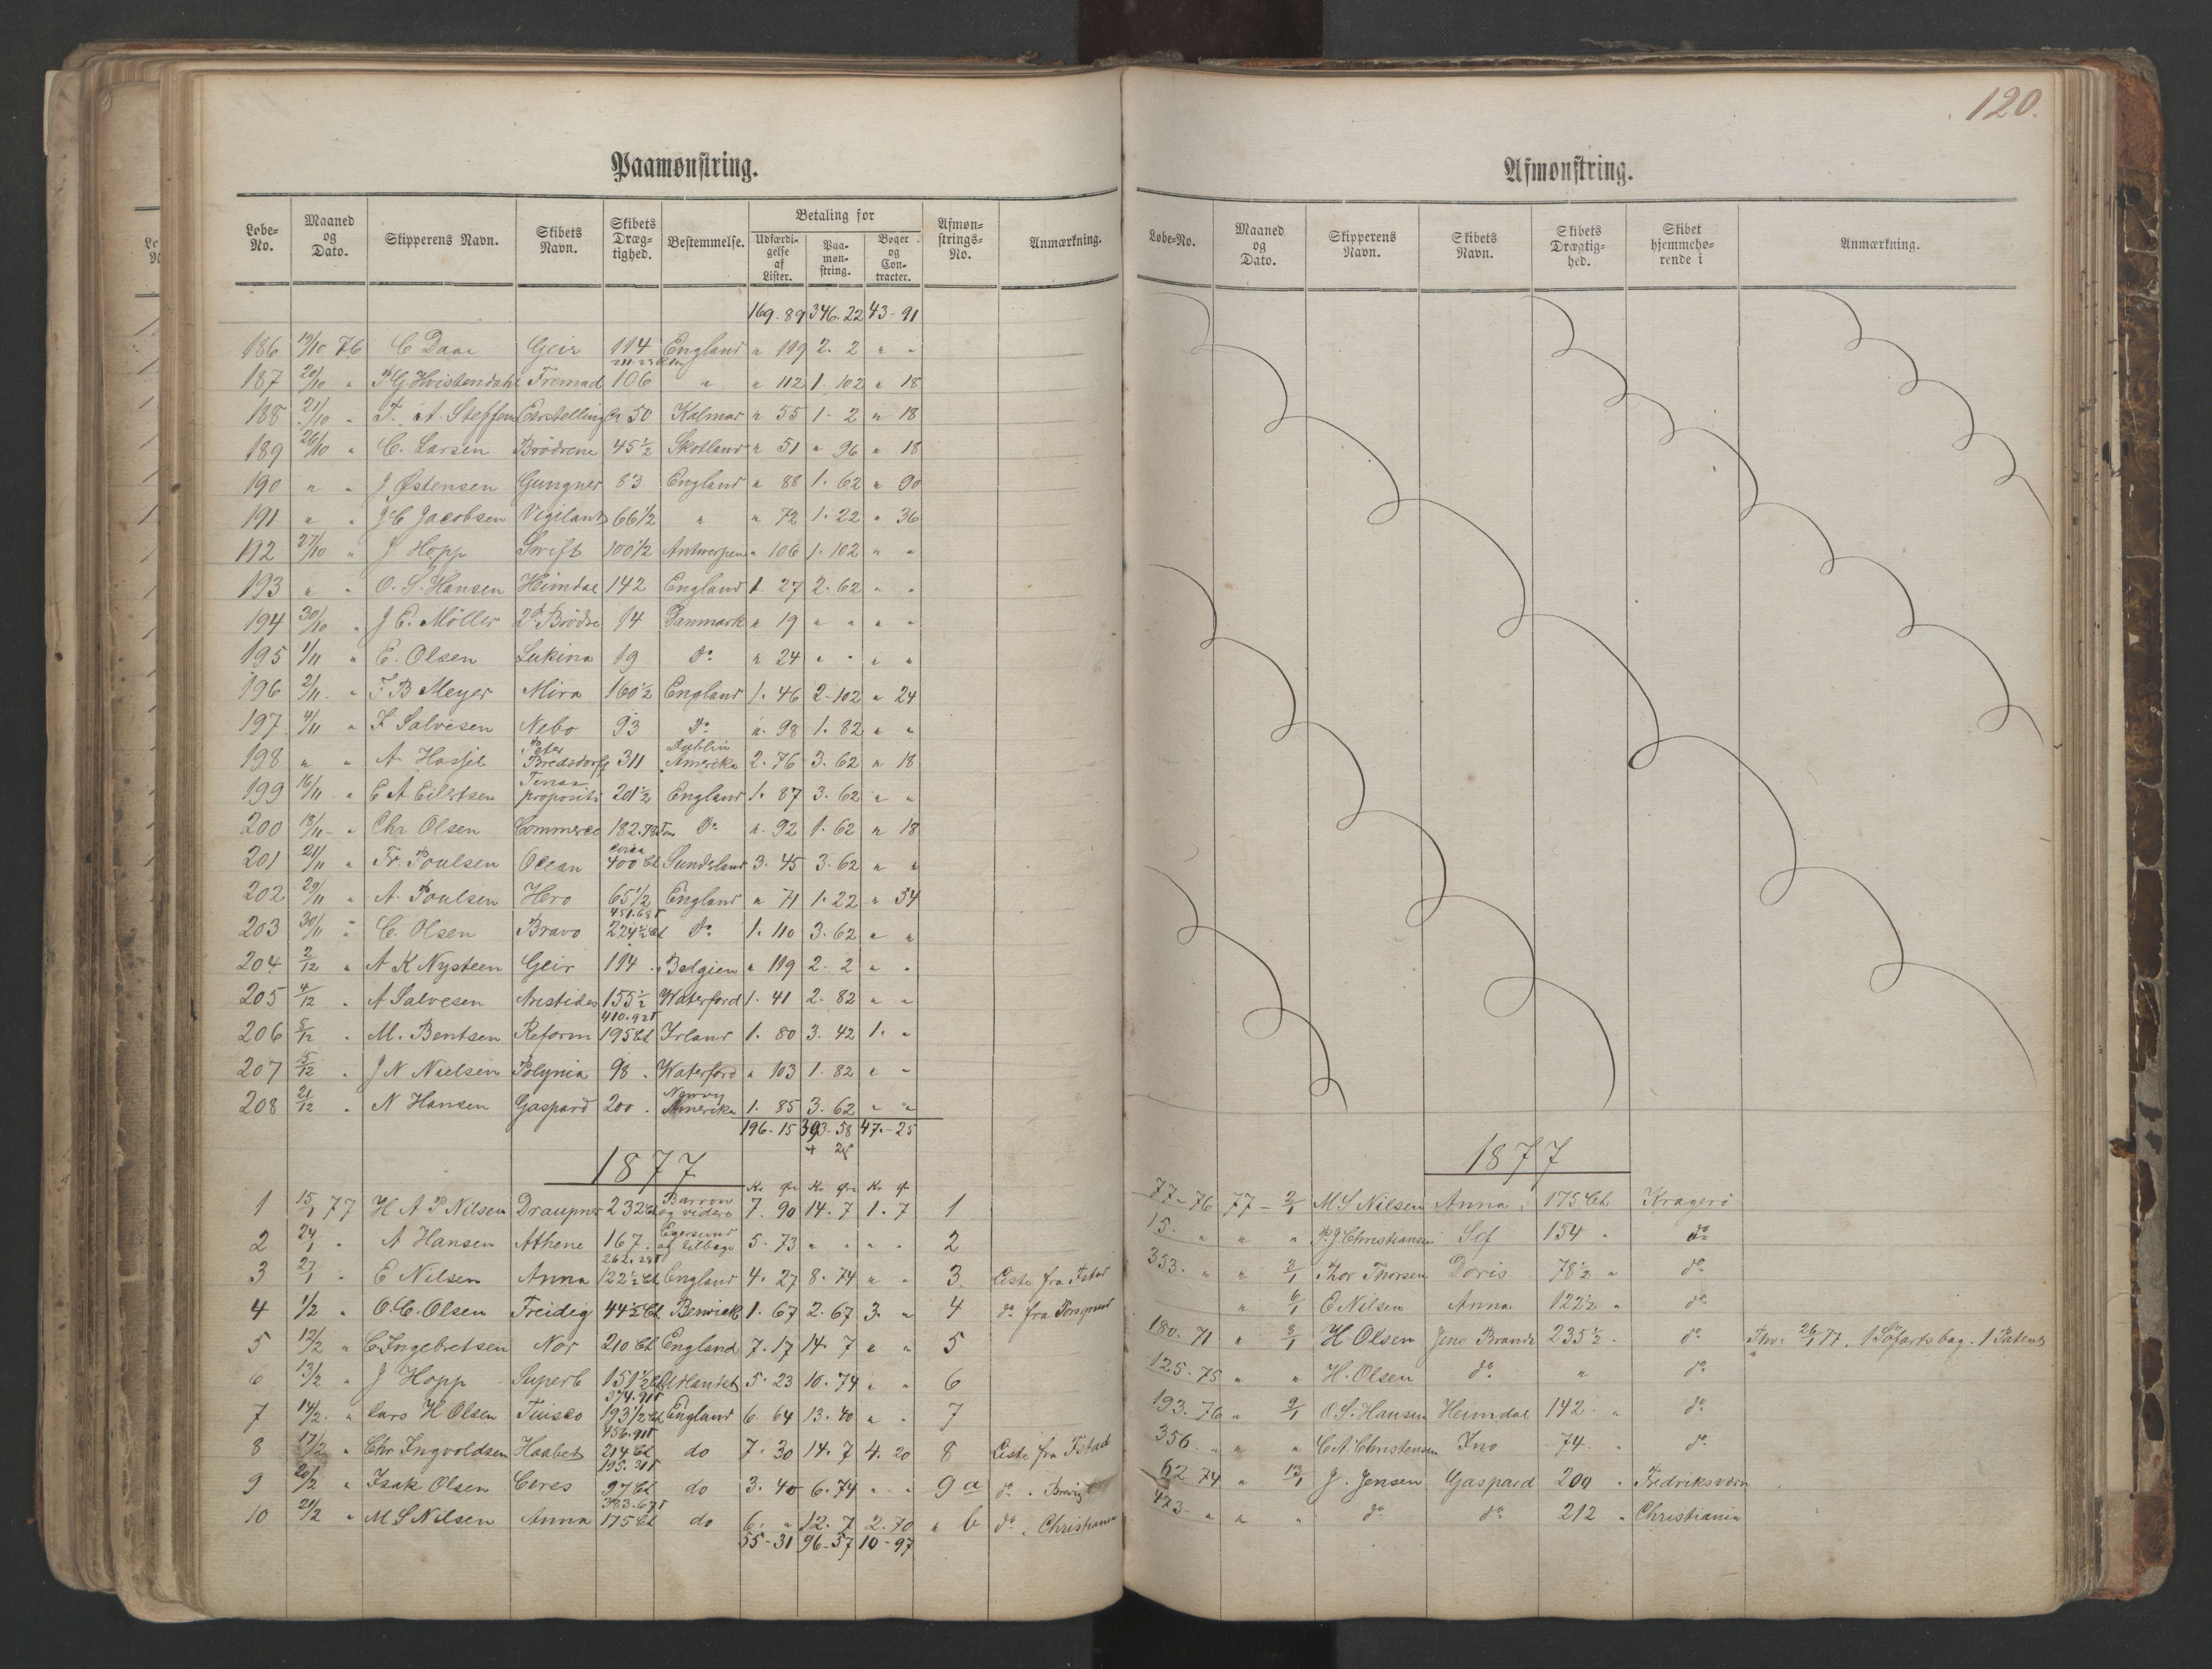 120.
Paamønstring.
Løbe-No. | Maaned og Dato. | Skipperens Navn. | Skibets Navn. | Skibets Dræg-tighed. | Bestemmelse. | Betaling for | Udfærdi-gelse af Lister. | Paa-møn-string. | Bøger og Con-tracter. | Afmøn-strings-No. | Anmærkning.
169. 89 346. 22 43 - 91
186 19/10 76 C Daae Geir 114 England " 119 2. 2 " "
187 20/10 " P G. Hvistendahl Fremad 106 " " 112 1. 102 " 18
188 21/10 " T. A. Steffens Eerstelling 50 Kalmar " 55 1 - 2 " 18
189 26/10 " C. Larsen Brödrene 45 1/2 Skotland " 51 " 96 " 18
190 " " J Østensen Gungner 83 England " 88 1. 62 " 90
191 " " J C Jacobsen Vigilant 66 1/2 " " 72 1. 22 " 36
192 27/10 " J Hopp Swift 100 1/2 Antwerpen " 106 1. 102 " "
193 " " O. S. Hansen Heimdal 142 England 1. 27 2. 62 " "
194 30/10 " J E. Möller 2de Brödre 14 Danmark " 19 " " " "
195 1/11 " E. Olsen Lukina 19 do " 24 " " " "
196 2/11 " F B Meyer Mira 160 1/2 England 1. 46 2 - 102 " 24
197 4/11 " F Salvesen Nebo 93 do " 98 1. 82 " "
198 " " A Hassel Peter Bredsdorff 311 Dublin Amerika 2. 76 3. 62 " 18
199 16/11 " E A Eilertsen Tenax propositi 201 1/2 England 1. 87 3. 62 " "
200 18/11 " Chr Olsen Commerce 182. 78 Ton do " 92 1. 62 " 18
201 21/11 " Fr. Poulsen Ocean circa 400 Cl Sunderland 3. 45 3. 62 " "
202 29/11 " A. Poulsen Hero 65 1/2 England " 71 1. 22 " 54
203 30/11 " C. Olsen Bravo 451.68 T 224 1/2 Cl do 1. 110 3. 62 " "
204 2/12 " A K Nysteen Geir 114 Belgien " 119 2. 2 " "
205 4/12 " A Salvesen Aristides 155 1/2 Waterford 1. 41 2. 82 " "
206 5/12 " M. Bentsen Reform 410.92 T 195 Cl Irland 1. 80 3. 42 1. "
207 15/12 " J N Nielsen Polynia 98 Waterford " 103 1. 82 " "
208 21/12 " N Hansen Gaspard 200 Amerika 1. 85 3. 62 " "
196 - 15 393 - 58 47. - 25
1877
Kr Ør Kr Ør Kr Ør
1 15/1 77 H A P Nilsen Draupner 232 Cl Barrow og videre 7. 90 14. 7 1. 7 1
2 24/1 " A Hansen Athene 167 Egersund og tilbage 5. 73 " " " " 2
3 27/1 " E Nilsen Anna 262.28 T 122 1/2 Cl England 4. 27 8. 74 " " 3 Liste fra Fstad
4 1/2 " O. C. Olsen Freidig 44 1/2 Cl Berwick 1. 67 2. 67 3. " 4 do fra Porsgrund
5 12/2 " C. Ingebretsen Nor 210 Cl England 7. 17 14. 7 " " 5
6 13/2 " J Hopp Superb 151 1/2 Cl Udlandet 5. 23 10. 74 " " 6
7 14/2 " Lars H Olsen Tuisco 374.91 T 193 1/2 Cl England 6. 64 13. 40 " " 7
8 17/2 " Chr Ingvoldsen Haabet 456.91 T 214 Cl do 7. 30 14. 7 4. 20 8 Liste fra Fstad
9 20/2 " Isak Olsen Ceres 195.31 T 97 Cl do 3. 40 6. 74 " " 9 a do " Brevig
10 21/2 " M S Nilsen Anna 383.67 T 175 Cl do 6. " 12. 7 2. 70 " b do " Christiania
55 - 31 96 - 57 10 - 97
Afmønstring.
Løbe-No. | Maaned og Dato. | Skipperens Navn. | Skibets Navn. | Skibets Drægtig-hed. | Skibet hjemmehø-rende i | Anmærkning.
1877
77 - 76 77 - 2/1 M S Nilsen Anna 175 Cl. Kragerö
15. " " " P. J Christiansen Sef 154 " do
353. " " 3/1 Thor Thorsen Doris 78 1/2 " do
" 6/1 E Nilsen Anna 122 1/2 " do
180. 71 " 8/1 H Olsen Jens Brandi 235 1/2 " do 26/1 77. 1 Söfartsbog. 1 Patent
125. 75 " " H. Olsen do " do
193. 76 " 9/1 O S. Hansen Heimdal 142 " do
356. " " " C A Christensen Ino 74 " do
62. 74 " 13/1 J. Jensen Gaspard 200 " Fredriksværn
473. " " " do do 212 " Christiania